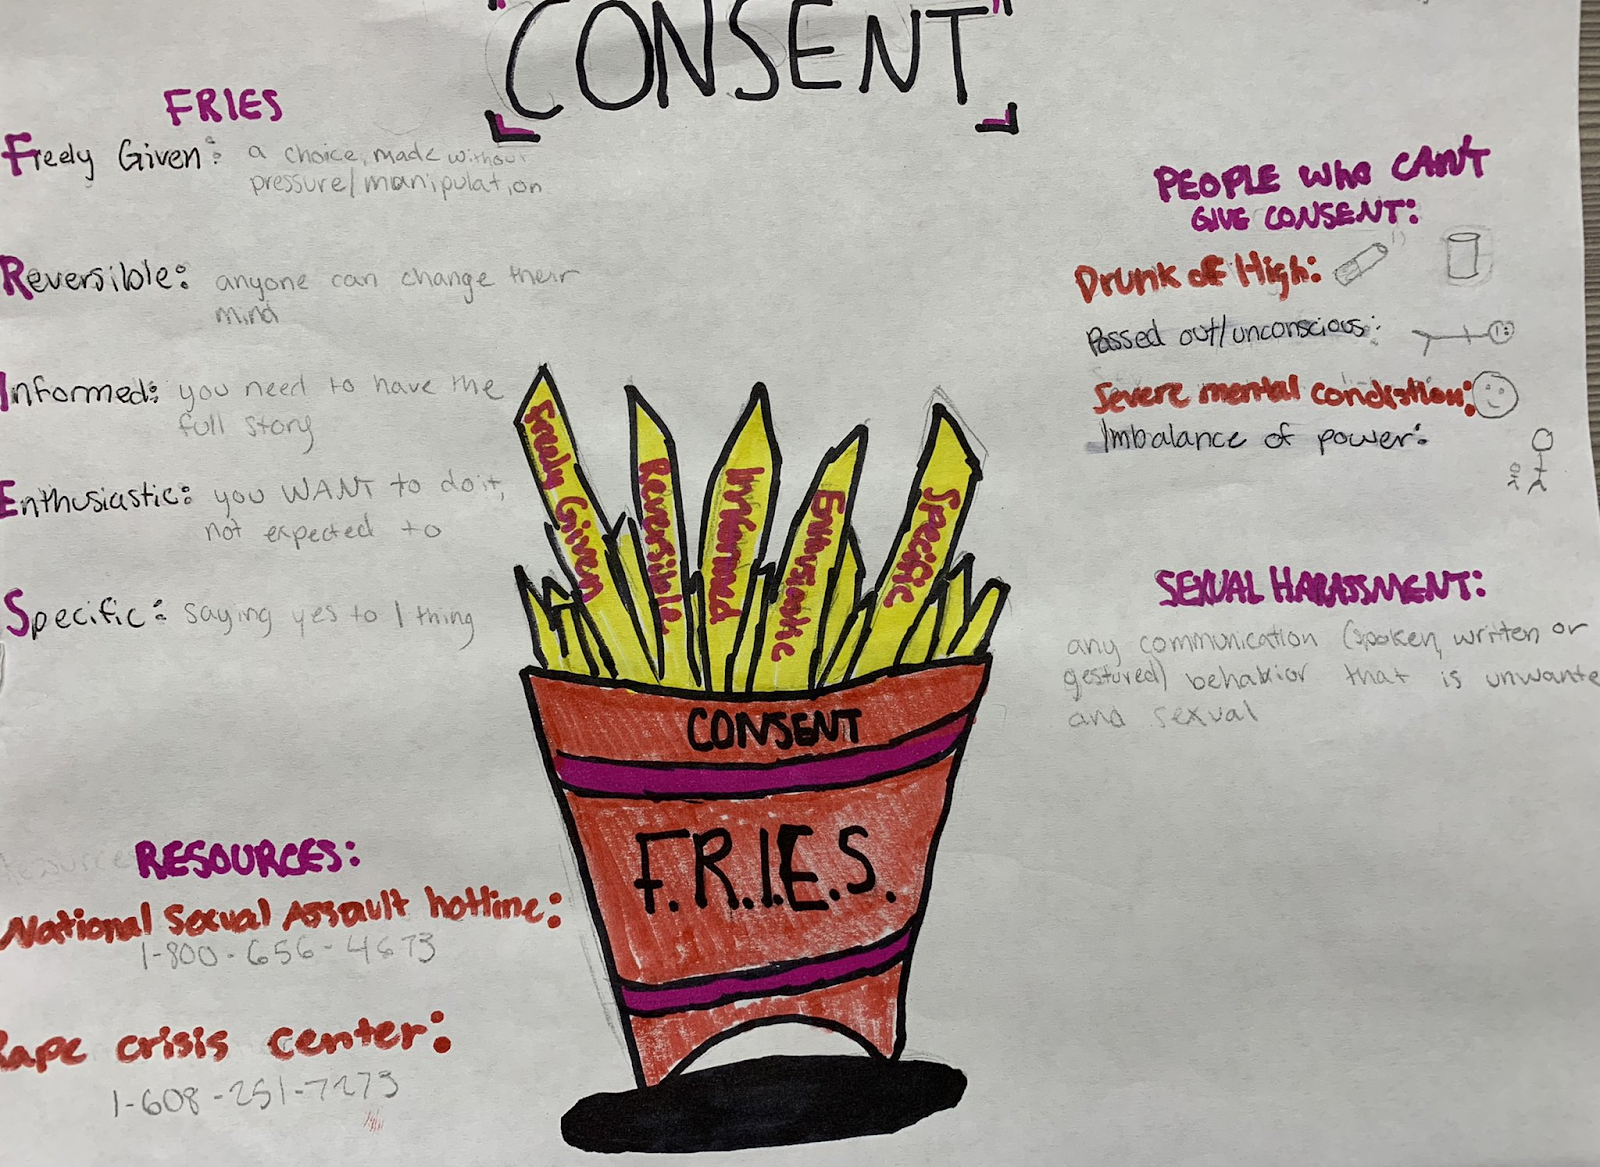 CONSENT
FRIES
Freely Given: a choice, made without
pressure/manipulation
Reversible: anyone can change their
mind
Informed: you need to have the
full story
Enthusiastic: you WANT to do it,
not expected to
Specific: saying yes to 1 thing
RESOURCES:
National Sexual Assault hotline:
1-800-656-4673
Rape crisis center:
1-608-251-7273
Freely Given
Reversible
Informed
Enthusiastic
Specific
CONSENT
F.R.I.E.S.
PEOPLE who CAN'T
GIVE CONSENT:
Drunk of High:
Passed out/unconscious:
Severe mental condistion:
Imbalance of power:
SEXUAL HARASSMENT:
any communication (spoken, written or
gestured) behavior that is unwante
and sexual